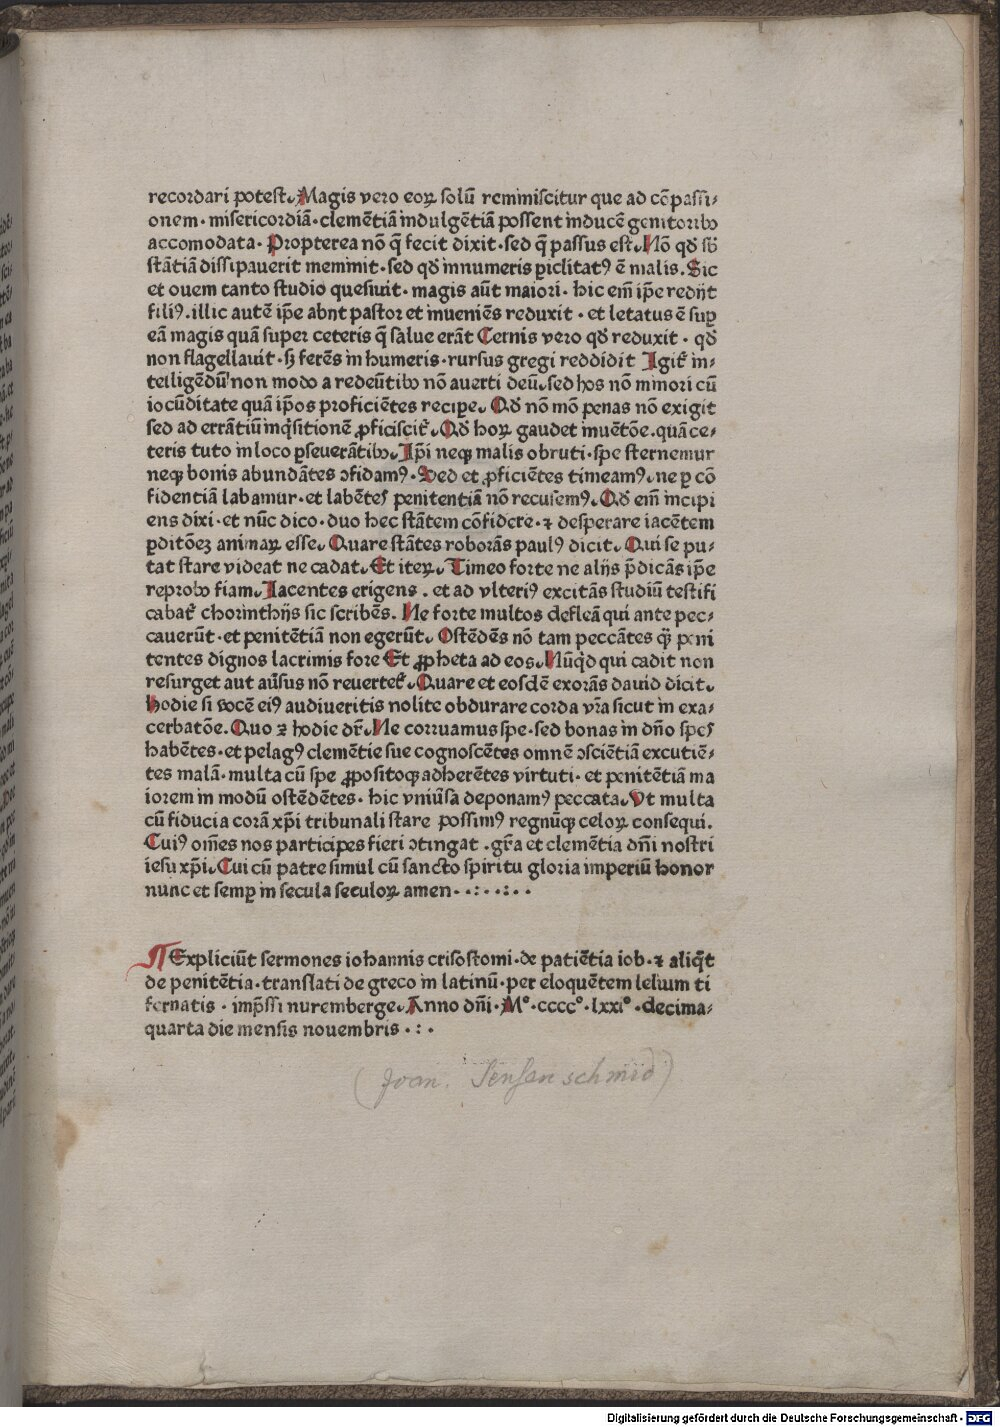 recordari potest. Magis vero eoꝝ solū reminiscitur que ad cōpassi-
onem · misericordiā · clemētiā indulgētiā possent inducē genitoribꝰ
accomodata · Propterea nō q̄ fecit dixit · sed q̄ passus est. Nō qđ sb̄
stātiā dissipauerit meminit · sed qđ innumeris ꝑiclitatꝰ ē malis. Sic
et ouem tanto studio quesiuit · magis aūt maiori · hic em̄ ip̄e redijt
filiꝰ. illic autē ip̄e abijt pastor et inueniēs reduxit · et letatus ē suꝑ
eā magis quā super ceteris q̄ salue erāt Cernis vero qđ reduxit · qđ
non flagellauit · ꝩ ferēs in humeris · rursus gregi reddidit Igit᷑ in-
telligēdū non modo a redeūtibꝰ nō auerti deū. sed hos nō minori cū
iocūditate quā ip̄os proficiētes recipe. Qđ nō mō penas nō exigit
sed ad errātiū inq̄sitionē ꝓficiscit᷑. Qđ hoꝝ gaudet inuētōe. quā ce-
teris tuto in loco ꝑseuerātibꝰ. Ip̄i neqꝫ malis obruti · spe sternemur
neqꝫ bonis abundātes ↄfidamꝰ. Sed et ꝓficiētes timeamꝰ. ne ꝑ cō
fidentiā labamur · et labētes penitentiā nō recusemꝰ. Qđ em̄ incipi
ens dixi · et nūc dico · duo hec stātem cōfidere · ⁊ desperare iacētem
ꝑditōeꝫ animaꝝ esse. Quare stātes roborās paulꝰ dicit. Qui se pu-
tat stare videat ne cadat. Et iteꝝ. Timeo forte ne alijs p̄dicās ip̄e
reprobꝰ fiam. Iacentes erigens . et ad vlteriꝰ excitās studiū testifi
cabat᷑ chorinthijs sic scribēs. Ne forte multos defleā qui ante pec-
cauerūt · et penitētiā non egerūt. Ostēdēs nō tam peccātes q̄ꝫ peni
tentes dignos lacrimis fore Et ꝓpheta ad eos. Nūq̄d qui cadit non
resurget aut aūsus nō reuertet᷑. Quare et eosdē exorās dauid dicit.
Hodie si vocē eiꝰ audiueritis nolite obdurare corda vr̄a sicut in exa-
cerbatōe. Quo ⁊ hodie dr̄. Ne corruamus spe · sed bonas in dn̄o spes
habētes · et pelagꝰ clemētie sue cognoscētes omnē ↄsciētiā excutiē-
tes malā · multa cū spe ꝓpositoqꝫ adherētes virtuti · et penitētiā ma
iorem in modū ostēdētes · hic vniūsa deponamꝰ peccata. Vt multa
cū fiducia corā xp̄i tribunali stare possimꝰ regnūqꝫ celoꝝ consequi.
Cuiꝰ om̄es nos participes fieri ↄtingat . gr̄a et clemētia dn̄i nostri
iesu xp̄i. Cui cū patre simul cū sancto spiritu gloria imperiū honor
nunc et semꝑ in secula seculoꝝ amen · · : · · : · ·
Expliciūt sermones iohannis crisostomi · de patiētia iob · ⁊ aliq̄t
de penitētia · translati de greco in latinū · per eloquētem lelium ti
fernatis · imp̄ssi nuremberge. Anno dn̄i · M° · cccc° · lxxi° · decima-
quarta die mensis nouembris · : ·
(Joan. Sensenschmid)
Digitalisierung gefördert durch die Deutsche Forschungsgemeinschaft - DFG